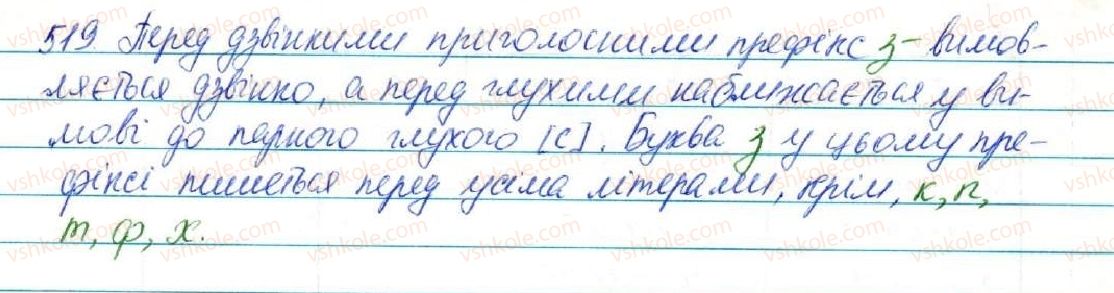 519. Перед дзвінкими приголосними префікс з- вимов-
ляється дзвінко, а перед глухими наближається у ви-
мові до парного глухого [с]. Буква з у цьому пре-
фіксі пишеться перед усіма літерами, крім, к, п,
т, ф, х.